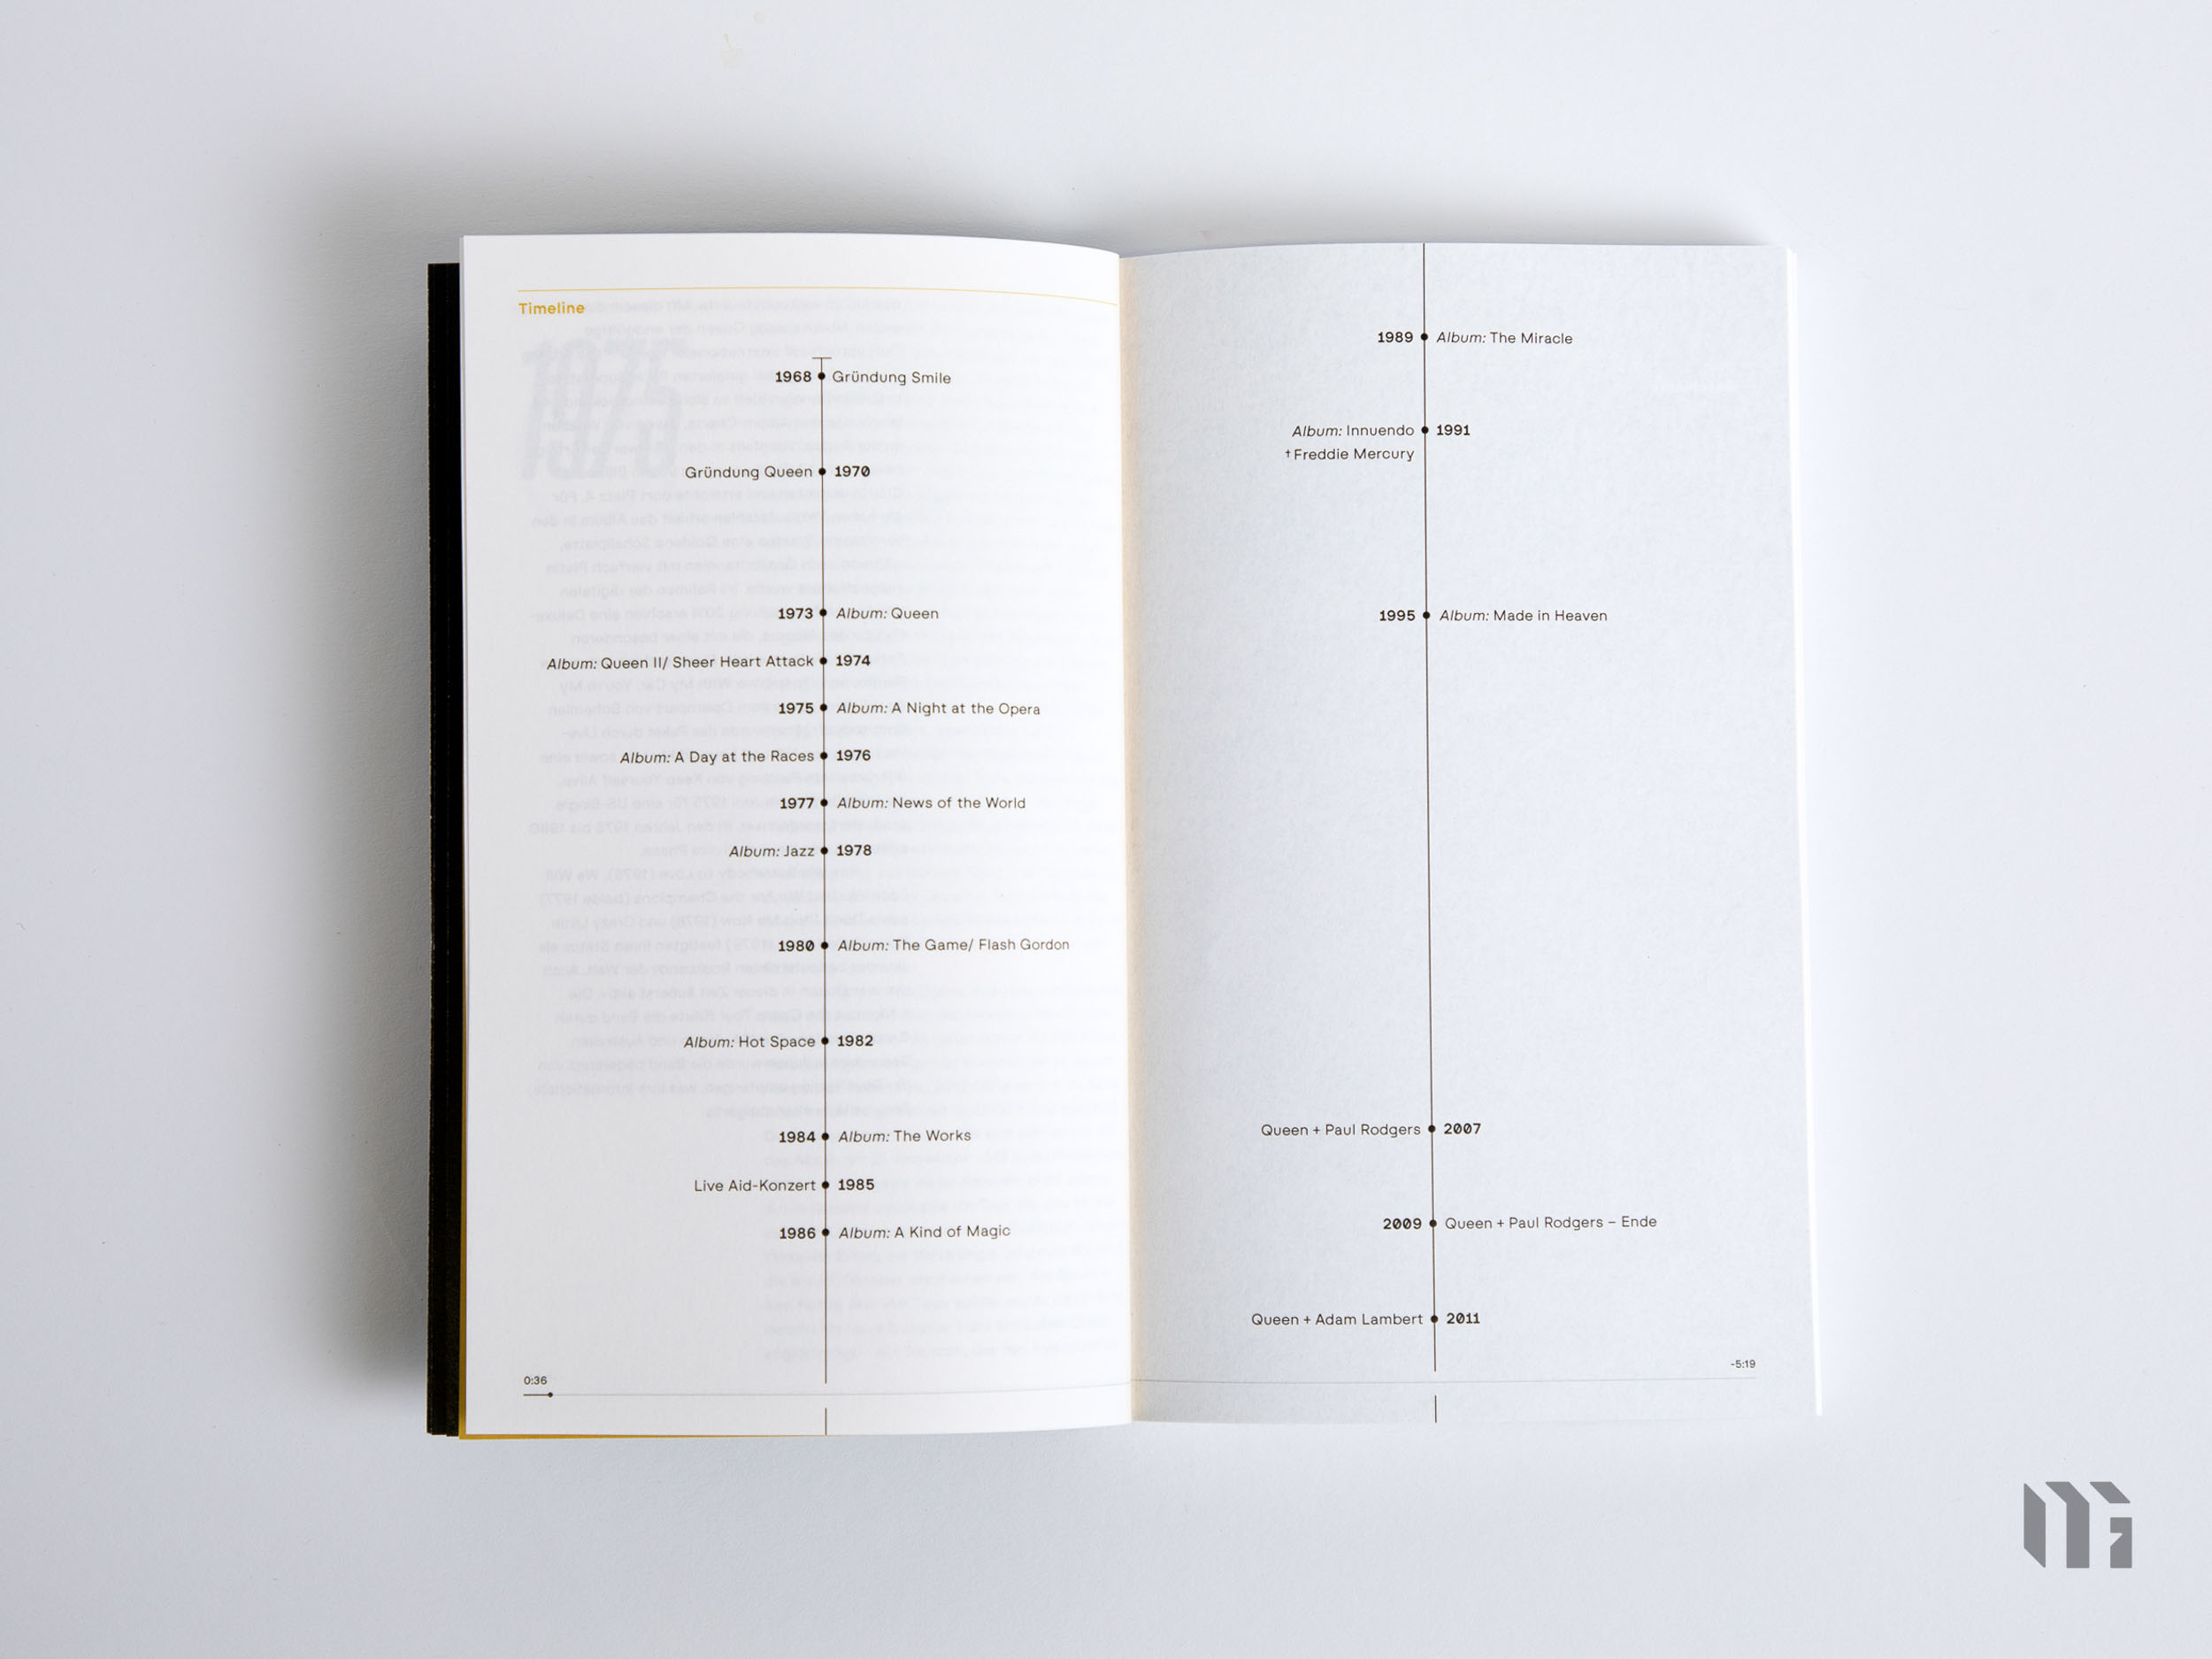 Timeline
1968 Gründung Smile
Gründung Queen 1970
1973 Album: Queen
Album: Queen II/ Sheer Heart Attack 1974
1975 Album: A Night at the Opera
Album: A Day at the Races 1976
1977 Album: News of the World
Album: Jazz 1978
1980 Album: The Game/ Flash Gordon
Album: Hot Space 1982
1984 Album: The Works
Live Aid-Konzert 1985
1986 Album: A Kind of Magic
0:36
1989 Album: The Miracle
Album: Innuendo 1991
† Freddie Mercury
1995 Album: Made in Heaven
Queen + Paul Rodgers 2007
2009 Queen + Paul Rodgers – Ende
Queen + Adam Lambert 2011
-5:19